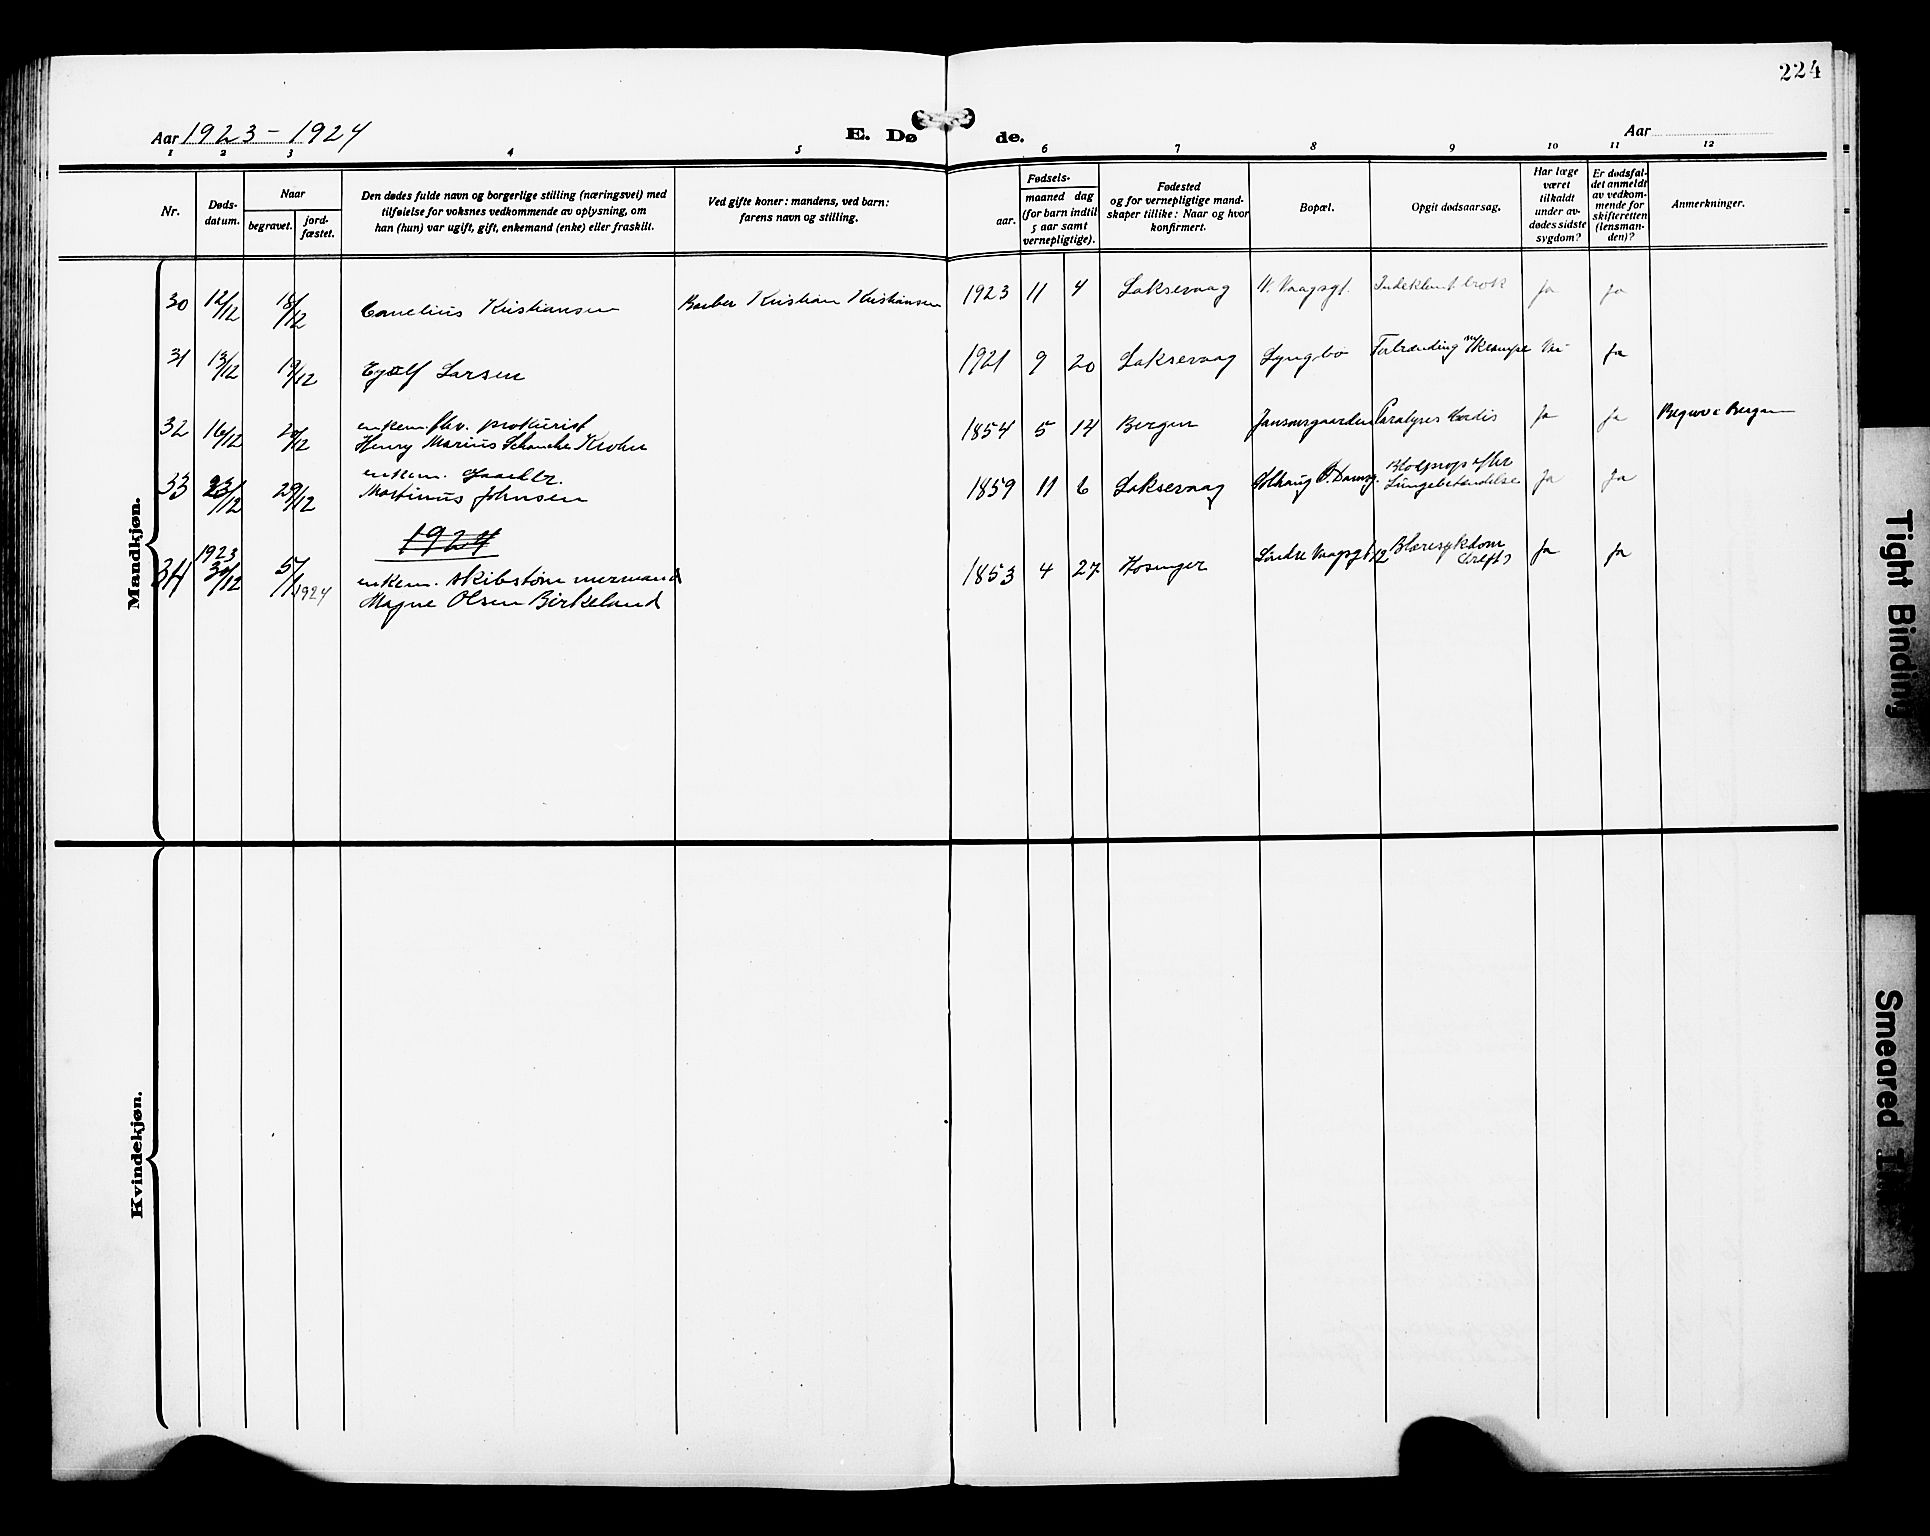 224
Aar 1923-1924
E. Dø de.
Aar
1 2 3 4 5 6 7 8 9 10 11 12
Nr.
Døds-
datum.
Naar
begravet.
jord-
fæstet.
Den dødes fulde navn og borgerlige stilling (næringsvei) med
tilføielse for voksnes vedkommende av oplysning, om
han (hun) var ugift, gift, enkemand (enke) eller fraskilt.
Ved gifte koner: mandens, ved barn:
farens navn og stilling.
Fødsels-
aar.
maaned dag
(for barn indtil
5 aar samt
vernepligtige).
Fødested
og for vernepligtige mand-
skaper tillike: Naar og hvor
konfirmert.
Bopæl.
Opgit dødsaarsag.
Har læge
været
tilkaldt
under av-
dødes sidste
sygdom?
Er dødsfal-
det anmeldt
av vedkom-
mende for
skifteretten
(lensman-
den)?
Anmerkninger.
Mandkjøn.
30 12/12 18/12 Cornelius Kristiansen Barber Kristian Kristiansen 1923 11 4 Laksevaag N. Vaagsgt. Indeklemt brok Ja Ja
31 13/12 19/12 Eyolf Larsen 1921 9 20 Laksevaag Lyngbø Forbrænding Nei Ja
32 16/12 20/12 enkem. fhv. prokurist
Henry Marius Schanche Krohn 1854 5 14 Bergen Jansonsgaarden Paralyses Cordis Ja Ja Begrav. i Bergen
33 23/12 29/12 enkem.
Martinus Johnsen 1859 11 6 Laksevaag Solhaug Blodprop efter
Lungebetendelse Ja Ja
1924
34 1923
30/12 5/1 1924 enkem. skibstømmermand
Magne Olsen Birkeland 1853 4 27 Hosanger Søndre Vaagsgt. 12 Blæresykdom
(kreft) Ja Ja
Kvindekjøn.
Tight Binding
Smeared